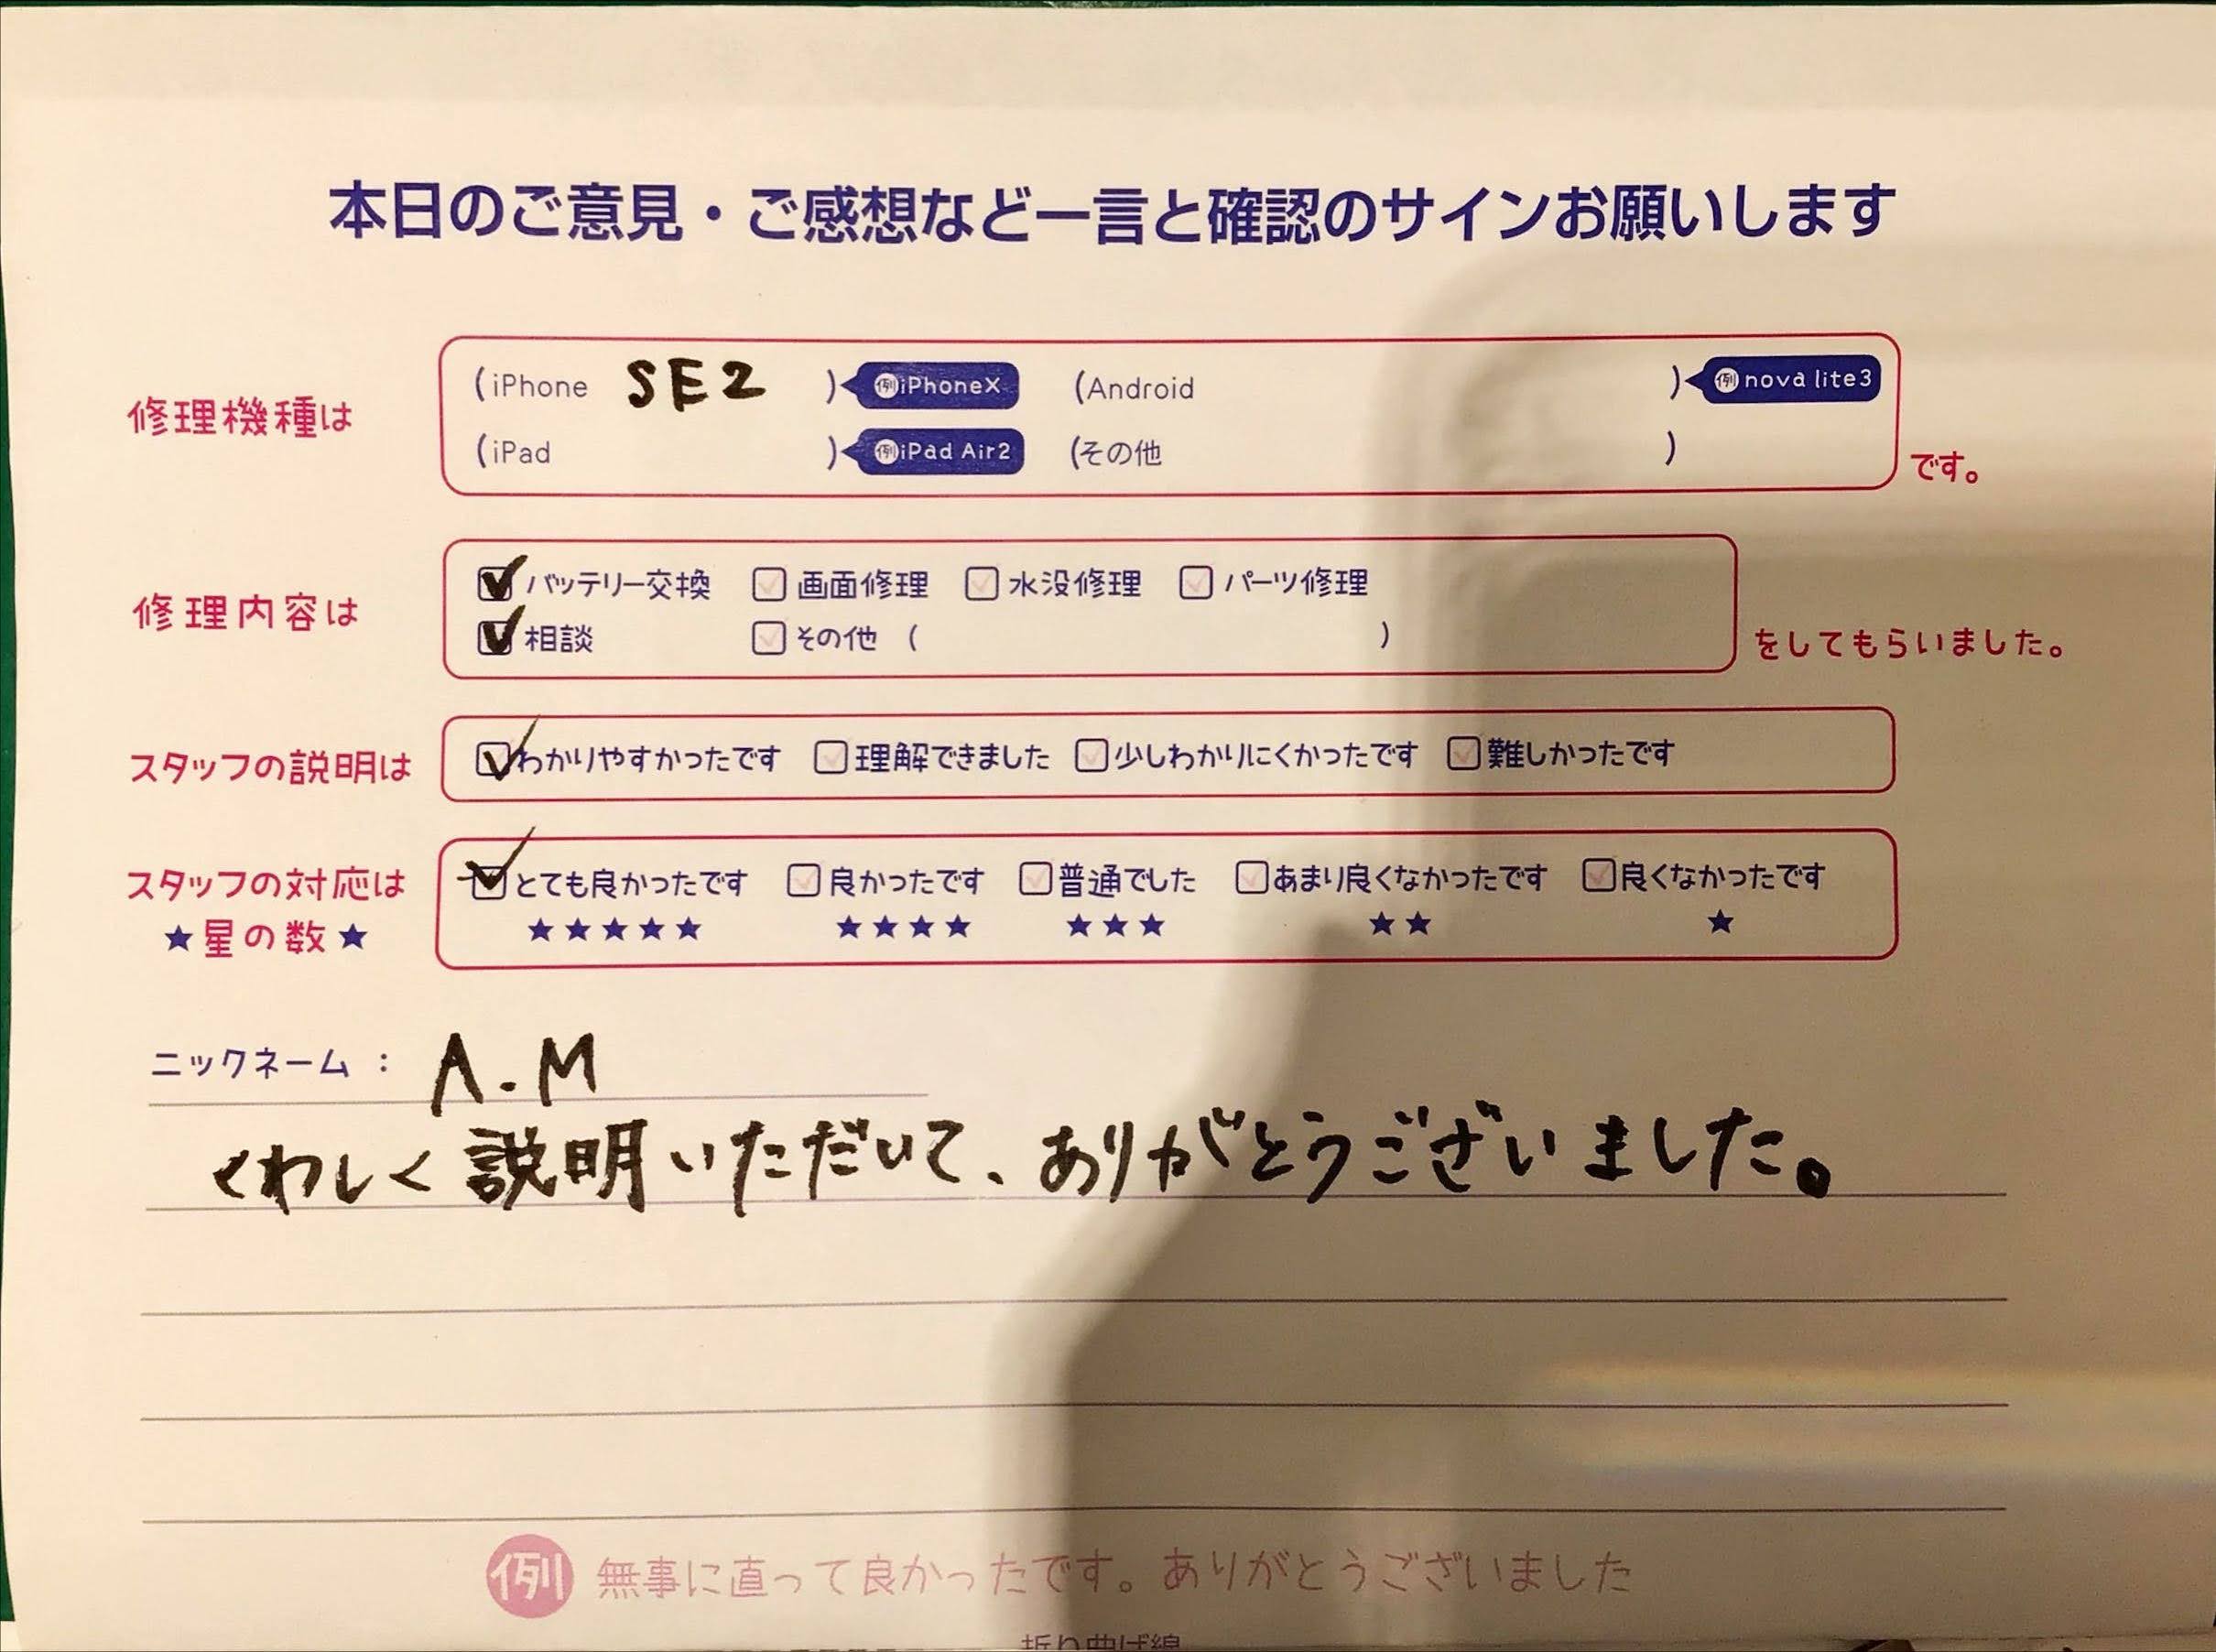 本日のご意見・ご感想など一言と確認のサインお願いします
修理機種は
(iPhone SE2 ) 例iPhoneX (Android ) 例nova lite3
(iPad ) 例iPad Air2 (その他 )
です。
修理内容は
バッテリー交換 画面修理 水没修理 パーツ修理
相談 その他 ( )
をしてもらいました。
スタッフの説明は
わかりやすかったです 理解できました 少しわかりにくかったです 難しかったです
スタッフの対応は
★星の数★
とても良かったです 良かったです 普通でした あまり良くなかったです 良くなかったです
★★★★★ ★★★★ ★★★ ★★ ★
ニックネーム： A.M
くわしく説明いただいて、ありがとうございました。
例 無事に直って良かったです。ありがとうございました
折り曲げ線